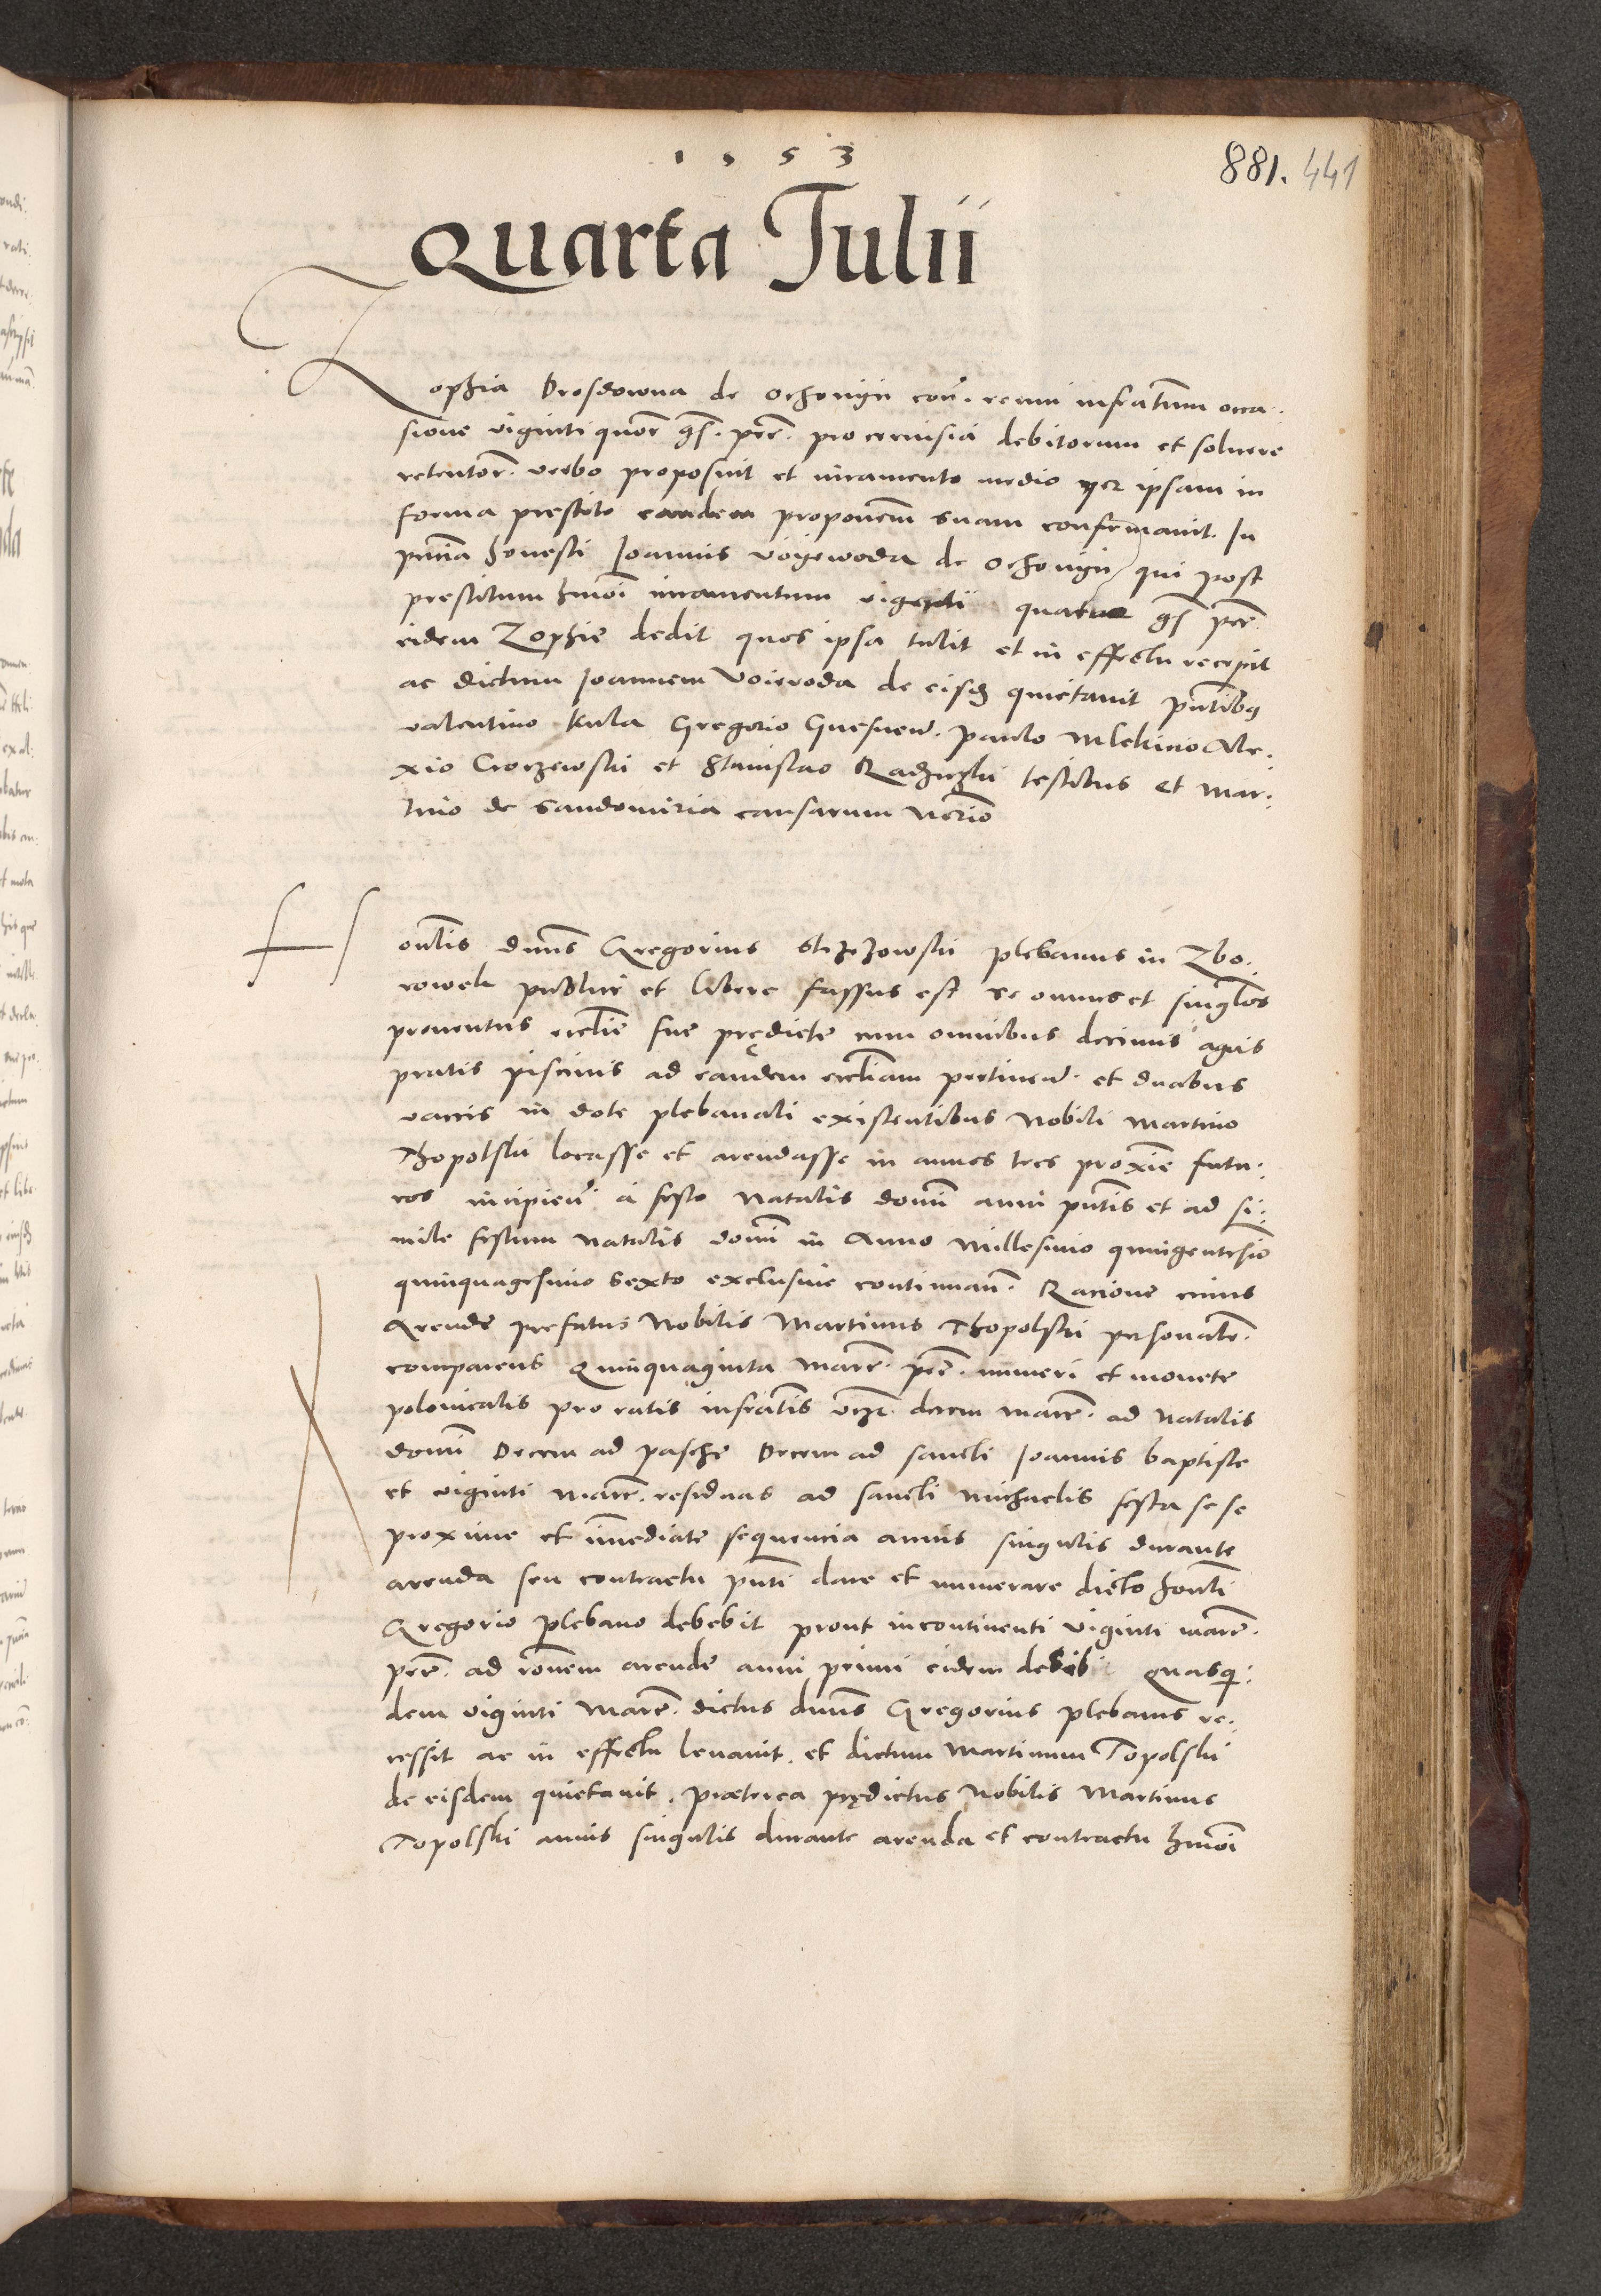 1553
881. 441
Quarta Julii
Zophia Drosdowna de Ochonyn coñ. reum infratum occa-
sione viginti quor gs. pecc. pro cervisia debitorum et solvere
retentor. verbo proposuit et iuramento medio per ipsam in
forma prestito eandem propoñem suam confirmavit. In
pñcia honesti Joannis Voyewoda de Ochonyn qui post
prestitum hmoi iuramentum viginti quatuor gs pecc.
eidem Zophie dedit quos ipsa tulit et in effectu recepit
ac dictum Joannem Voievoda de eisdem quietavit pñtibus
valentino Kula Gregorio Paulo Mlekino Ale-
xio et Stanislao testibus et Mar-
tino de Sandomiria causarum Nõrio
Honlis dnus Gregorius plebanus in Zbo-
rowek publice et libere fassus est se omnes et singulos
proventus ecclie sue prędicte cum omnibus decimis agris
pratis piscinis ad eandem eccliam pertineñ. et duabus
vaccis in dote plebanali existentibus Nobili Martino
Thopolski locasse et arendasse in annos tres proxie futu-
ros incipieñ. a festo Natalis domi anni pñtis et ad si-
mile festum natalis domi in Anno Millesimo quingentesio
quinquagesimo sexto exclusive continuañ. Racione cuius
Arende prefatus Nobilis Martinus Thopolski personalr.
comparens Quinquaginta marc. pecc. numeri et monete
polonicalis pro ratis infratis vcz. decem marc. ad Natalis
domi Decem ad pasche Decem ad sancti Joannis baptiste
et viginti marc. residuas ad sancti Michaelis festa se se
proxime et imediate sequencia annis singulis durante
arenda seu contractu pñti dare et numerare dicto honli
Gregorio plebano debebit prout incontinenti viginti marc.
pecc. ad rõnem arende anni primi eidem dedit Quasqui-
dem viginti Marc. dictus dnus Gregorius plebanus re-
cessit ac in effectu levavit. et dictum Martinum Topolski
de eisdem quietavit. Praeterea prędictus Nobilis Martinus
Topolski annis singulis durante arenda et contractu hmoi